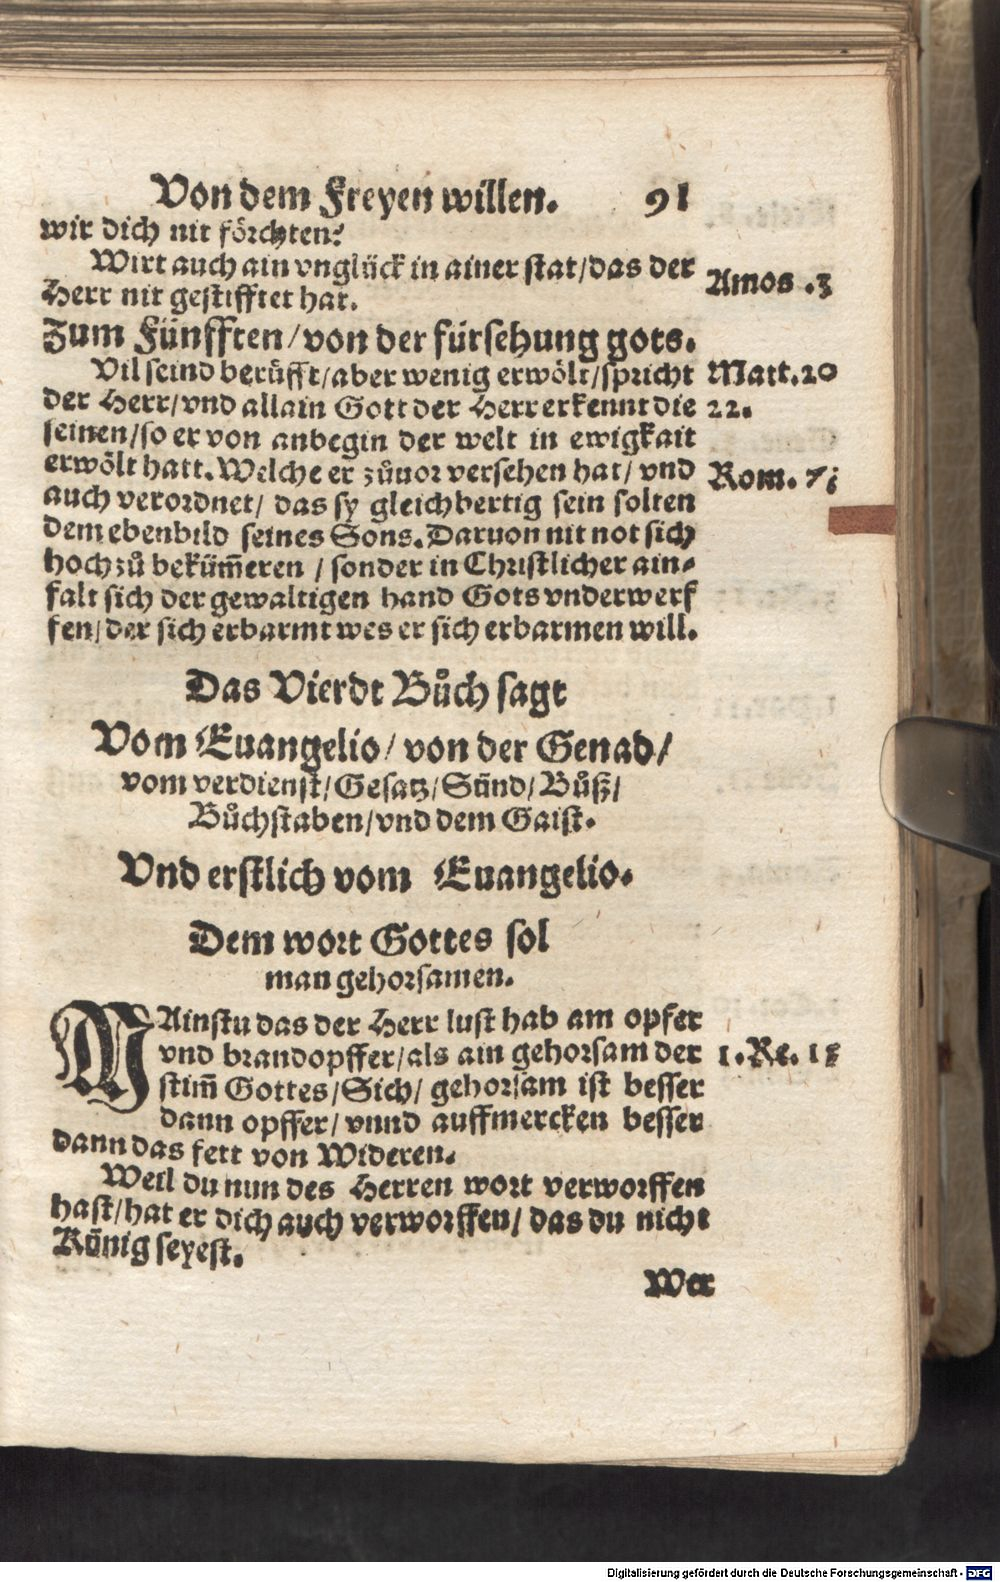 Von dem Freyen willen. 91
wir dich nit förchten?
Wirt auch ain vnglück in ainer stat/das der
Herr nit gestifftet hat.
Amos .3
Zum Fünfften/von der fürsehung gots.
Vil seind berůfft/aber wenig erwölt/spricht
Matt.20
der Herr/vnd allain Gott der Herr erkennt die
22.
seinen/so er von anbegin der welt in ewigkait
erwölt hatt.Welche er zůuor versehen hat/ vnd
Rom.
auch verordnet/ das sy gleichbertig sein solten
dem ebenbild seines Sons.Daruon nit not sich
hoch zů beküm̃eren / sonder in Christlicher ain-
falt sich der gewaltigen hand Gots vnderwerf
fen/ der sich erbarmt wes er sich erbarmen will.
Das Vierdt Bůch sagt
Vom Euangelio/ von der Genad/
vom verdienst/Gesatz/Sünd/Bůß/
Bůchstaben/vnd dem Gaist.
Vnd erstlich vom Euangelio.
Dem wort Gottes sol
man gehorsamen.
MAinstu das der Herr lust hab am opfer
vnd brandopffer/als am gehorsam der
1.Re. 15
stim̃ Gottes/Sich/ gehorsam ist besser
dann opffer/ vnnd auffmercken besser
dann das fett von Wideren.
Weil du nun des Herren wort verworffen
hast/hat er dich auch verworffen/ das du nicht
Künig seyest.
Wer
Digitalisierung gefördert durch die Deutsche Forschungsgemeinschaft - DFG